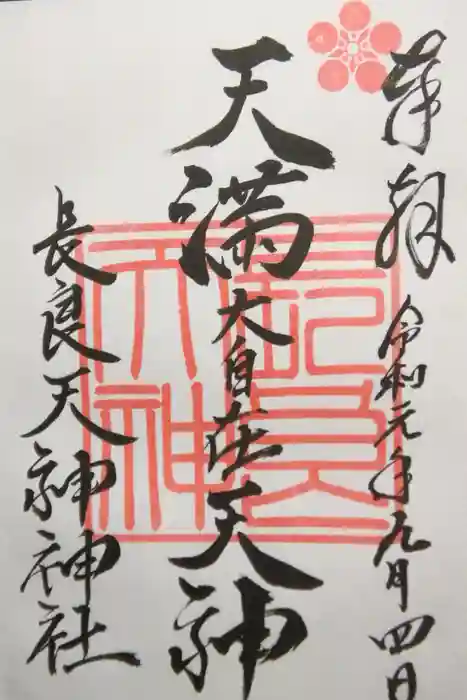 奉拝 令和元年九月四日
天満大自在天神
長良天神神社